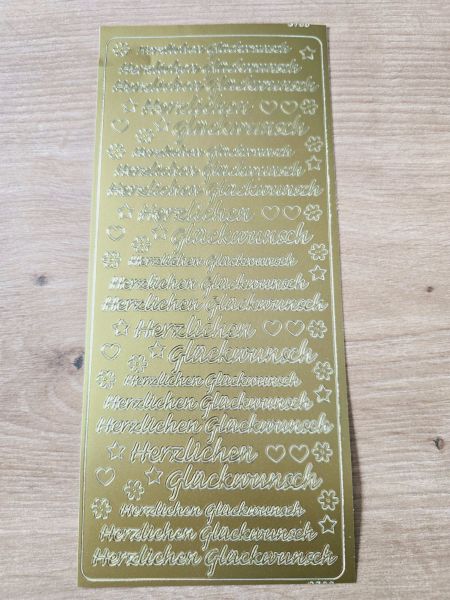 Herzlichen Glückwunsch
Herzlichen Glückwunsch
Herzlichen Glückwunsch
Herzlichen
Glückwunsch
Herzlichen Glückwunsch
Herzlichen Glückwunsch
Herzlichen Glückwunsch
Herzlichen
Glückwunsch
Herzlichen Glückwunsch
Herzlichen Glückwunsch
Herzlichen Glückwunsch
Herzlichen
Glückwunsch
Herzlichen Glückwunsch
Herzlichen Glückwunsch
Herzlichen Glückwunsch
Herzlichen
Glückwunsch
Herzlichen Glückwunsch
Herzlichen Glückwunsch
Herzlichen Glückwunsch